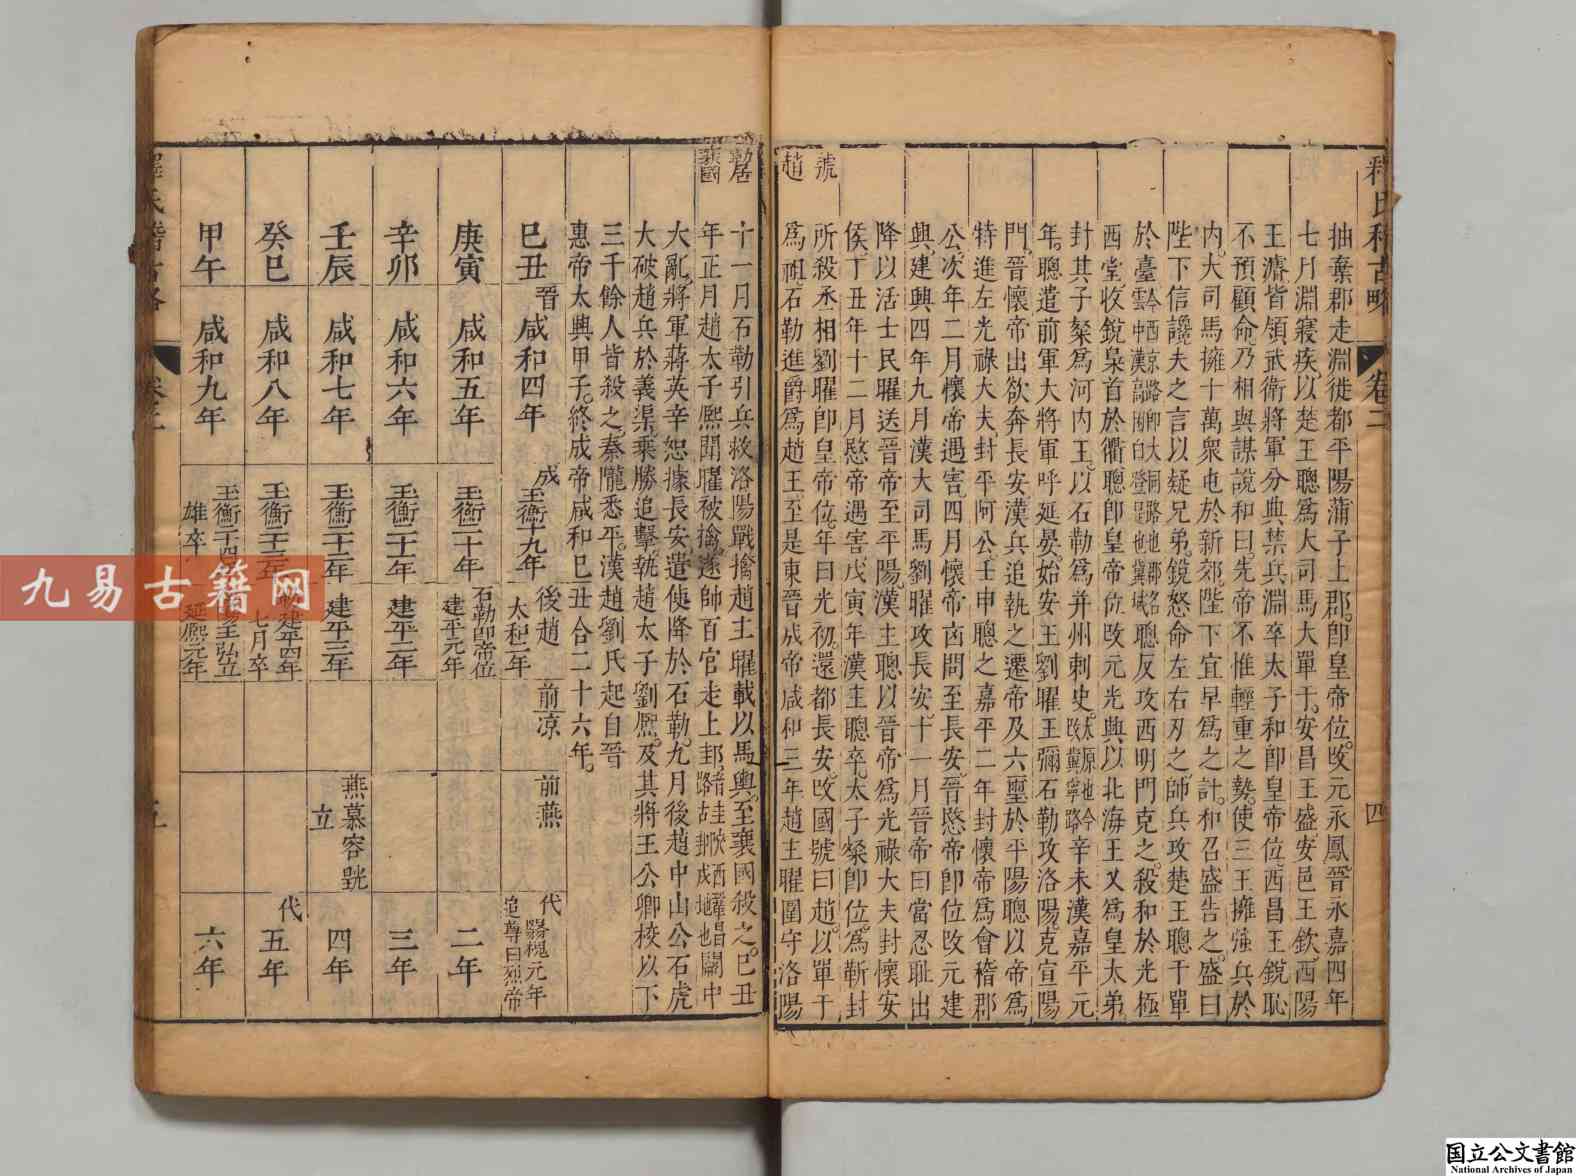 釋氏稽古略 卷二 四
抽棄郡走淵徙都平陽蒲子上郡即皇帝位改元永鳳晉永嘉四年
七月淵寢疾以楚王聰為大司馬大單于安昌王盛安邑王欽西陽
王濬皆領武衛將軍分典禁兵淵卒太子和即皇帝位西昌王銳恥
不預顧命乃相與謀說和曰先帝不惟輕重之勢使三王擁強兵於
內大司馬擁十萬衆屯於新郊陛下宜早為之計和召盛告之盛曰
陛下信讒夫之言以疑兄弟銳怒命左右刃之帥兵攻楚王聰于單
於臺雲今西京路即大同路也郡名中漢高帝困白登是也冀城聰反攻西明門克之殺和於光極
西堂收銳梟首於衢聰即皇帝位改元光興以北海王乂為皇太弟
封其子粲為河內王以石勒為并州刺史太原也今改冀寧路辛未漢嘉平元
年聰遣前軍大將軍呼延晏始安王劉曜王彌石勒攻洛陽克宣陽
門晉懷帝出欲奔長安漢兵追執之遷帝及六璽於平陽聰以帝為
特進左光祿大夫封平阿公壬申聰之嘉平二年封懷帝為會稽郡
公次年二月懷帝遇害四月懷帝凶問至長安晉愍帝即位改元建
興建興四年九月漢大司馬劉曜攻長安十一月晉帝曰當忍恥出
降以活士民曜送晉帝至平陽漢主聰以晉帝為光祿大夫封懷安
侯丁丑年十二月愍帝遇害戊寅年漢主聰卒太子粲即位為靳封
號 所殺丞相劉曜即皇帝位年曰光初還都長安改國號曰趙以單于
趙 為祖石勒進爵為趙王至是東晉成帝咸和三年趙主曜圍守洛陽
勒居 十一月石勒引兵救洛陽戰擒趙主曜載以馬輿至襄國殺之己丑
襄國 年正月趙太子熙聞曜被擒遂帥百官走上邽音圭陝西鞏昌路古邽戎地也關中
大亂將軍蔣英辛恕據長安遣使降於石勒九月後趙中山公石虎
大破趙兵於義渠乘勝追擊執趙太子劉熙及其將王公卿校以下
三千餘人皆殺之秦隴悉平漢趙劉氏起自晉
惠帝太興甲子終成帝咸和己丑合二十六年
己丑 晉 咸和四年 成 玉衡十九年 後趙 太和二年 前凉 前燕 代 翳槐元年 追尊曰烈帝
庚寅 咸和五年 玉衡二十年 石勒即帝位 建平元年 二年
辛卯 咸和六年 玉衡二十一年 建平二年 三年
壬辰 咸和七年 玉衡二十二年 建平三年 燕慕容皝立 四年
癸巳 咸和八年 玉衡二十三年 勒建平四年七月卒 代 五年
甲午 咸和九年 玉衡二十四 雄卒 至弘立 延熙元年 六年
釋氏稽古略 卷二 五
九易古籍网
国立公文書館
National Archives of Japan